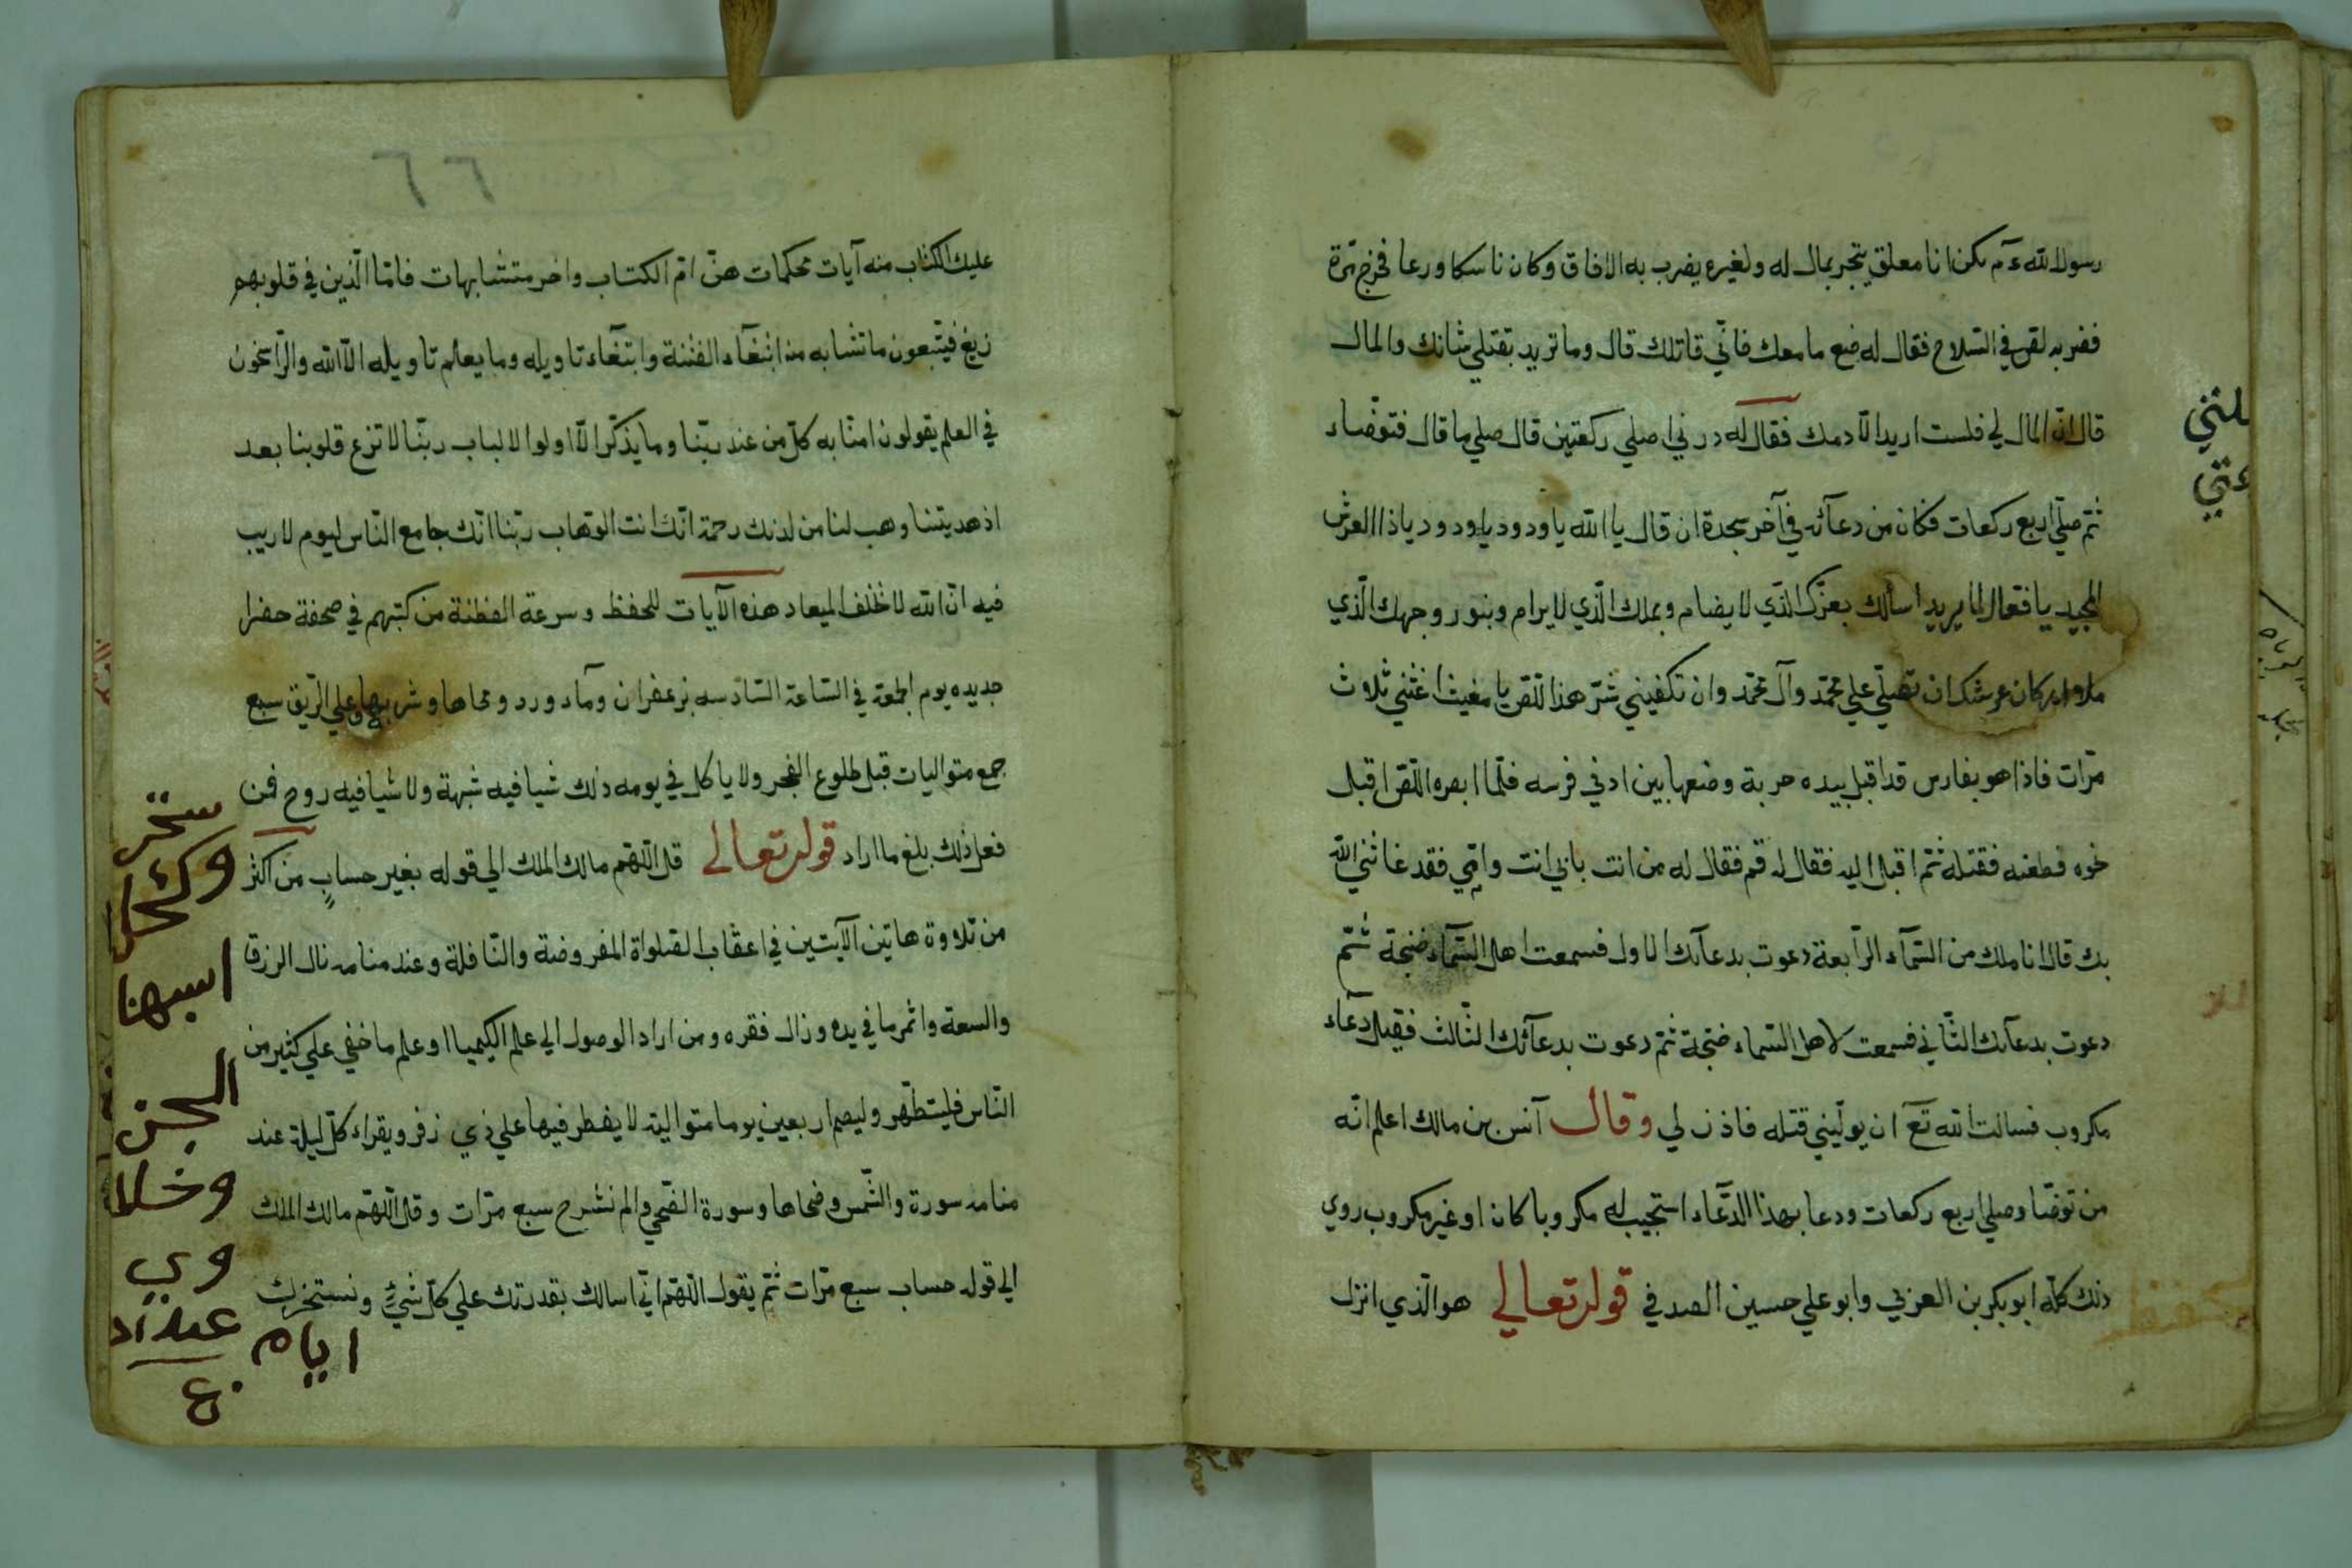 رسول الله ءم يكن انا معلق يتجر بمال له ولغيره يضرب به الافاق وكان ناسكا ورعا فخرج مرة
فضربه لقص في السلاح فقال له ضع ما معك فانّي قاتلك قال وما تريد بقتلي شانك والمال
قال انّ المال لي فلست اريد الّا دمك فقال له درني اصلي ركعتين قال صلي ما قال فتوضاء
ثمّ صلّي اربع ركعات فكان من دعآئه في آخر سجدة ان قال يا الله يا ودود يا ودود ياذا العرش
المجيد يا فعال لما يريد اسألك بعزّك الّذي لا يضام وبملك الّذي لا يرام وبنور وجهك الّذي
ملاء اركان عرشك ان تصلّي علي محمّد وآل محمّد وان تكفيني شرّ هذا اللّص يا مغيث اغثني ثلاث
مرّات فاذا هو بفارس قد اقبل بيده حربة وضعها بين ادني فرسه فلمّا ابصره اللّص اقبل
نحوه فطعنه فقتله ثمّ اقبل اليه فقال له قم فقال له من انت بابي انت وامّي فقد غاثني الله
بك قال انا ملك من السّمآء الرّابعة دعوت بدعآئك الاول فسمعت اهل السّمآء ضجة ثمّ
دعوت بدعآئك الثّاني فسمعت لاهل السّماء ضجّة ثمّ دعوت بدعآئك الثّالث فقيل دعآء
مكروب فسالت الله تعٓ ان يولّيني قتله فاذن لي وقال آنس بن مالك اعلم انّه
من توضّا وصلي اربع ركعات ودعا بهذا الدّعآء استجيب له مكروبا كان او غير مكروب روي
ذلك كلّه ابو بكر بن العزبي وابو علي حسين الصدفي قوله تعالي هو الّذي انزل
لمنني
ءتي
عليك الكتاب منه آيات محكمات هنّ امّ الكتاب واخر متشابهات فامّا الّذين في قلوبهم
زيغ فيتّبعون ما تشابه منه ابتغآء الفتنة وابتغآء تاويله وما يعلم تاويله الّا الله والرّاسخون
في العلم يقولون امنّا به كلّ من عند ربّنا وما يذكّر الّا اولوا الالباب ربّنا لا تزع قلوبنا بعد
اذ هديتنا وهب لنا من لدنك رحمة انّك انت الوهّاب ربّنا انّك جامع النّاس ليوم لا ريب
فيه انّ الله لا يخلف الميعاد هذه الآيات للحفظ وسرعة الفطنة من كتبهم في صحفة خضرا
جديده يوم الجمعة في السّاعة السّادسه بزعفران ومآء ورد ومحاها وشربها علي الرّيق سبع
جمع متواليات قبل طلوع الفجر ولا ياكل في يومه ذلك شيا فيه شبهة ولا شيا فيه روح فمن
فعل ذلك بلغ ما اراد قوله تعالي قل اللّهم مالك الملك الي قوله بغير حسابٍ من اكثر
من تلاوة هاتين الآيتين في اعقاب الصّلواة المفروضة والنّافلة وعند منامه نال الرزق
والسعة واثمر ما في يده وزال فقره ومن اراد الوصول الي علم الكيميا او علم ما خفي علي كثير من
النّاس فليتطهّر وليصم اربعين يوما متوالية لا يفطر فيها علي ذي زفر ويقراء كلّ ليلة عند
منامه سورة والشّمس وضحاها وسورة الضّحي والم نشرح سبع مرّات وقل اللّهمّ مالك الملك
الي قوله حساب سبع مرّات ثمّ يقول اللّهمّ انّي اسالك بقدرتك علي كلّ شيءٍ ونستخرك
ايام
الجن
٦٦